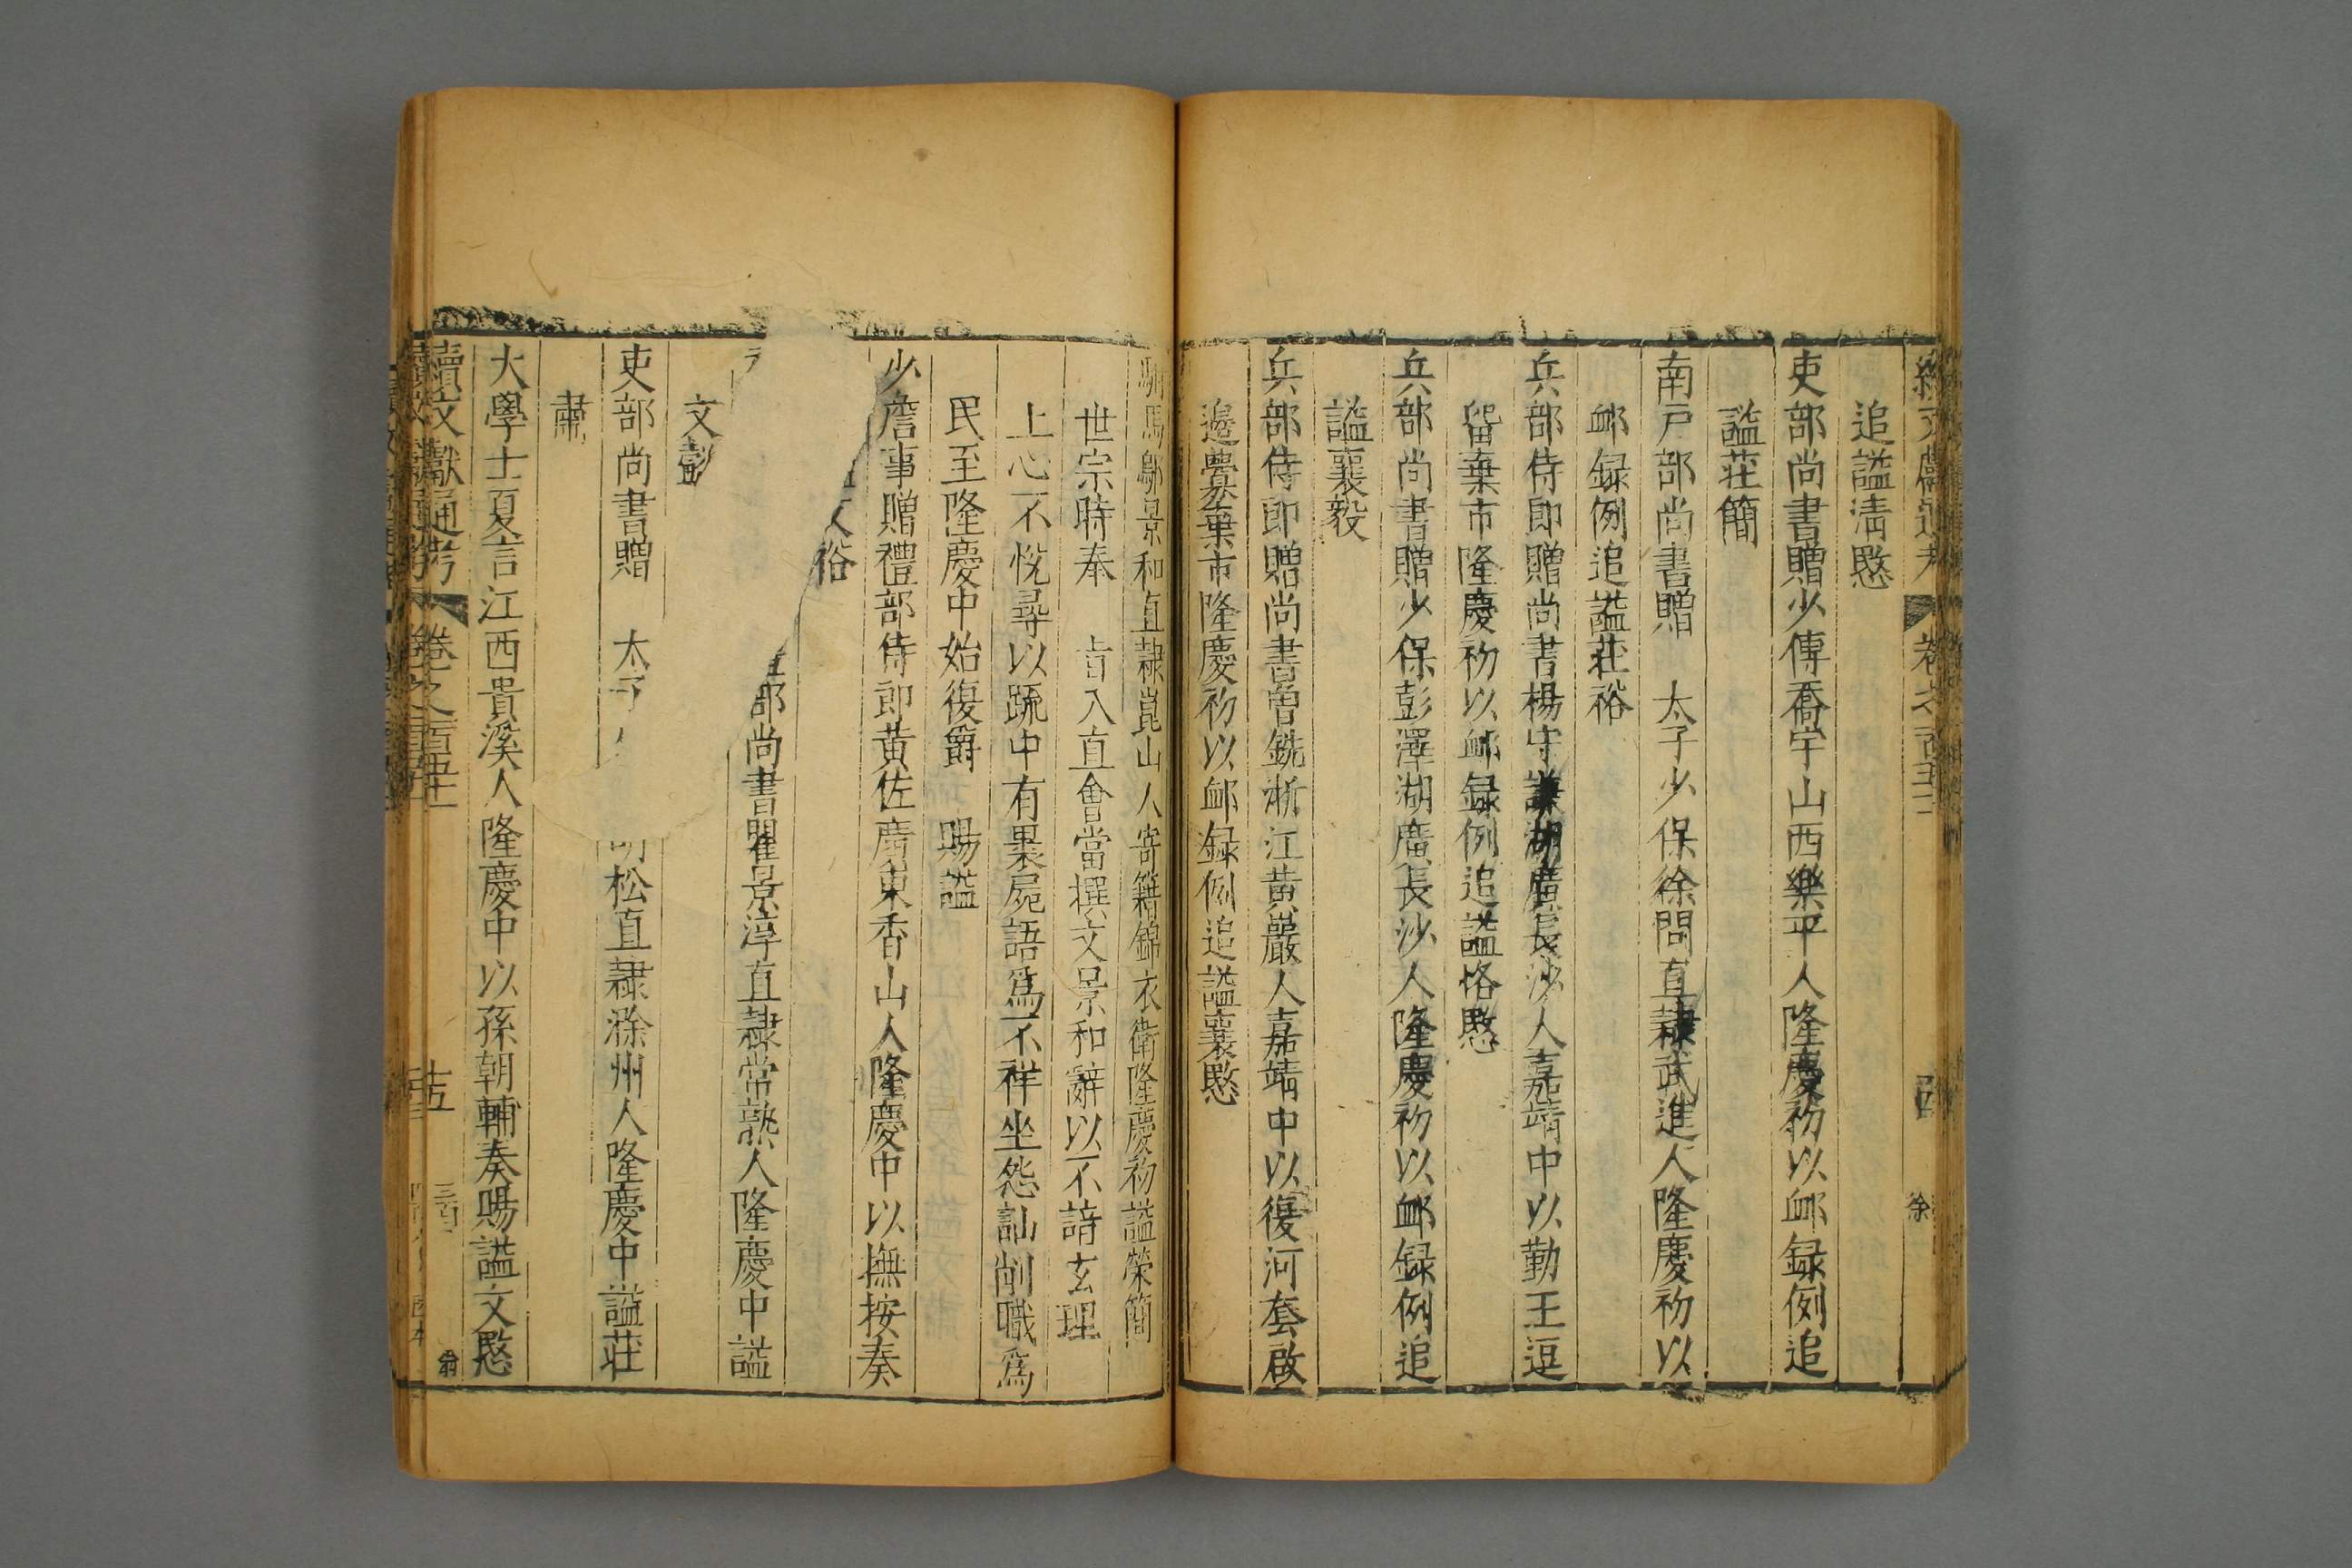 追謚淸愍
吏部尚書贈少傅喬宇山西樂平人隆慶初以䘏録例追
謚莊簡
南戸部尚書贈　太子少保徐問直隷武進人隆慶初以
䘏録例追謚莊裕
兵部侍郎贈尚書楊守謙湖廣長沙人嘉靖中以勤王逗
畱棄市隆慶初以䘏録例追謚恪愍
兵部尚書贈少保彭澤湖廣長沙人隆慶初以䘏録例追
謚襄毅
兵部侍郎贈尚書曾銑浙江黄巖人嘉靖中以復河套啟
邉釁棄市隆慶初以䘏録例追謚襄愍
駙馬鄔景和直隷崑山人寄籍錦衣衛隆慶初謚榮簡
世宗時奉　㫖入直會當撰文景和辭以不諳玄理
上心不悅尋以䟽中有裹屍語爲不祥坐怨訕削職爲
民至隆慶中始復爵　賜謚
少詹事贈禮部侍郎黄佐廣東香山人隆慶中以撫按奏
裕
部尚書瞿景淳直隷常熟人隆慶中謚
文懿
吏部尚書贈　太子　松直隷滁州人隆慶中謚莊
肅
大學士夏言江西貴溪人隆慶中以孫朝輔奏賜謚文愍
續文獻通考　卷之一百五十一　十五